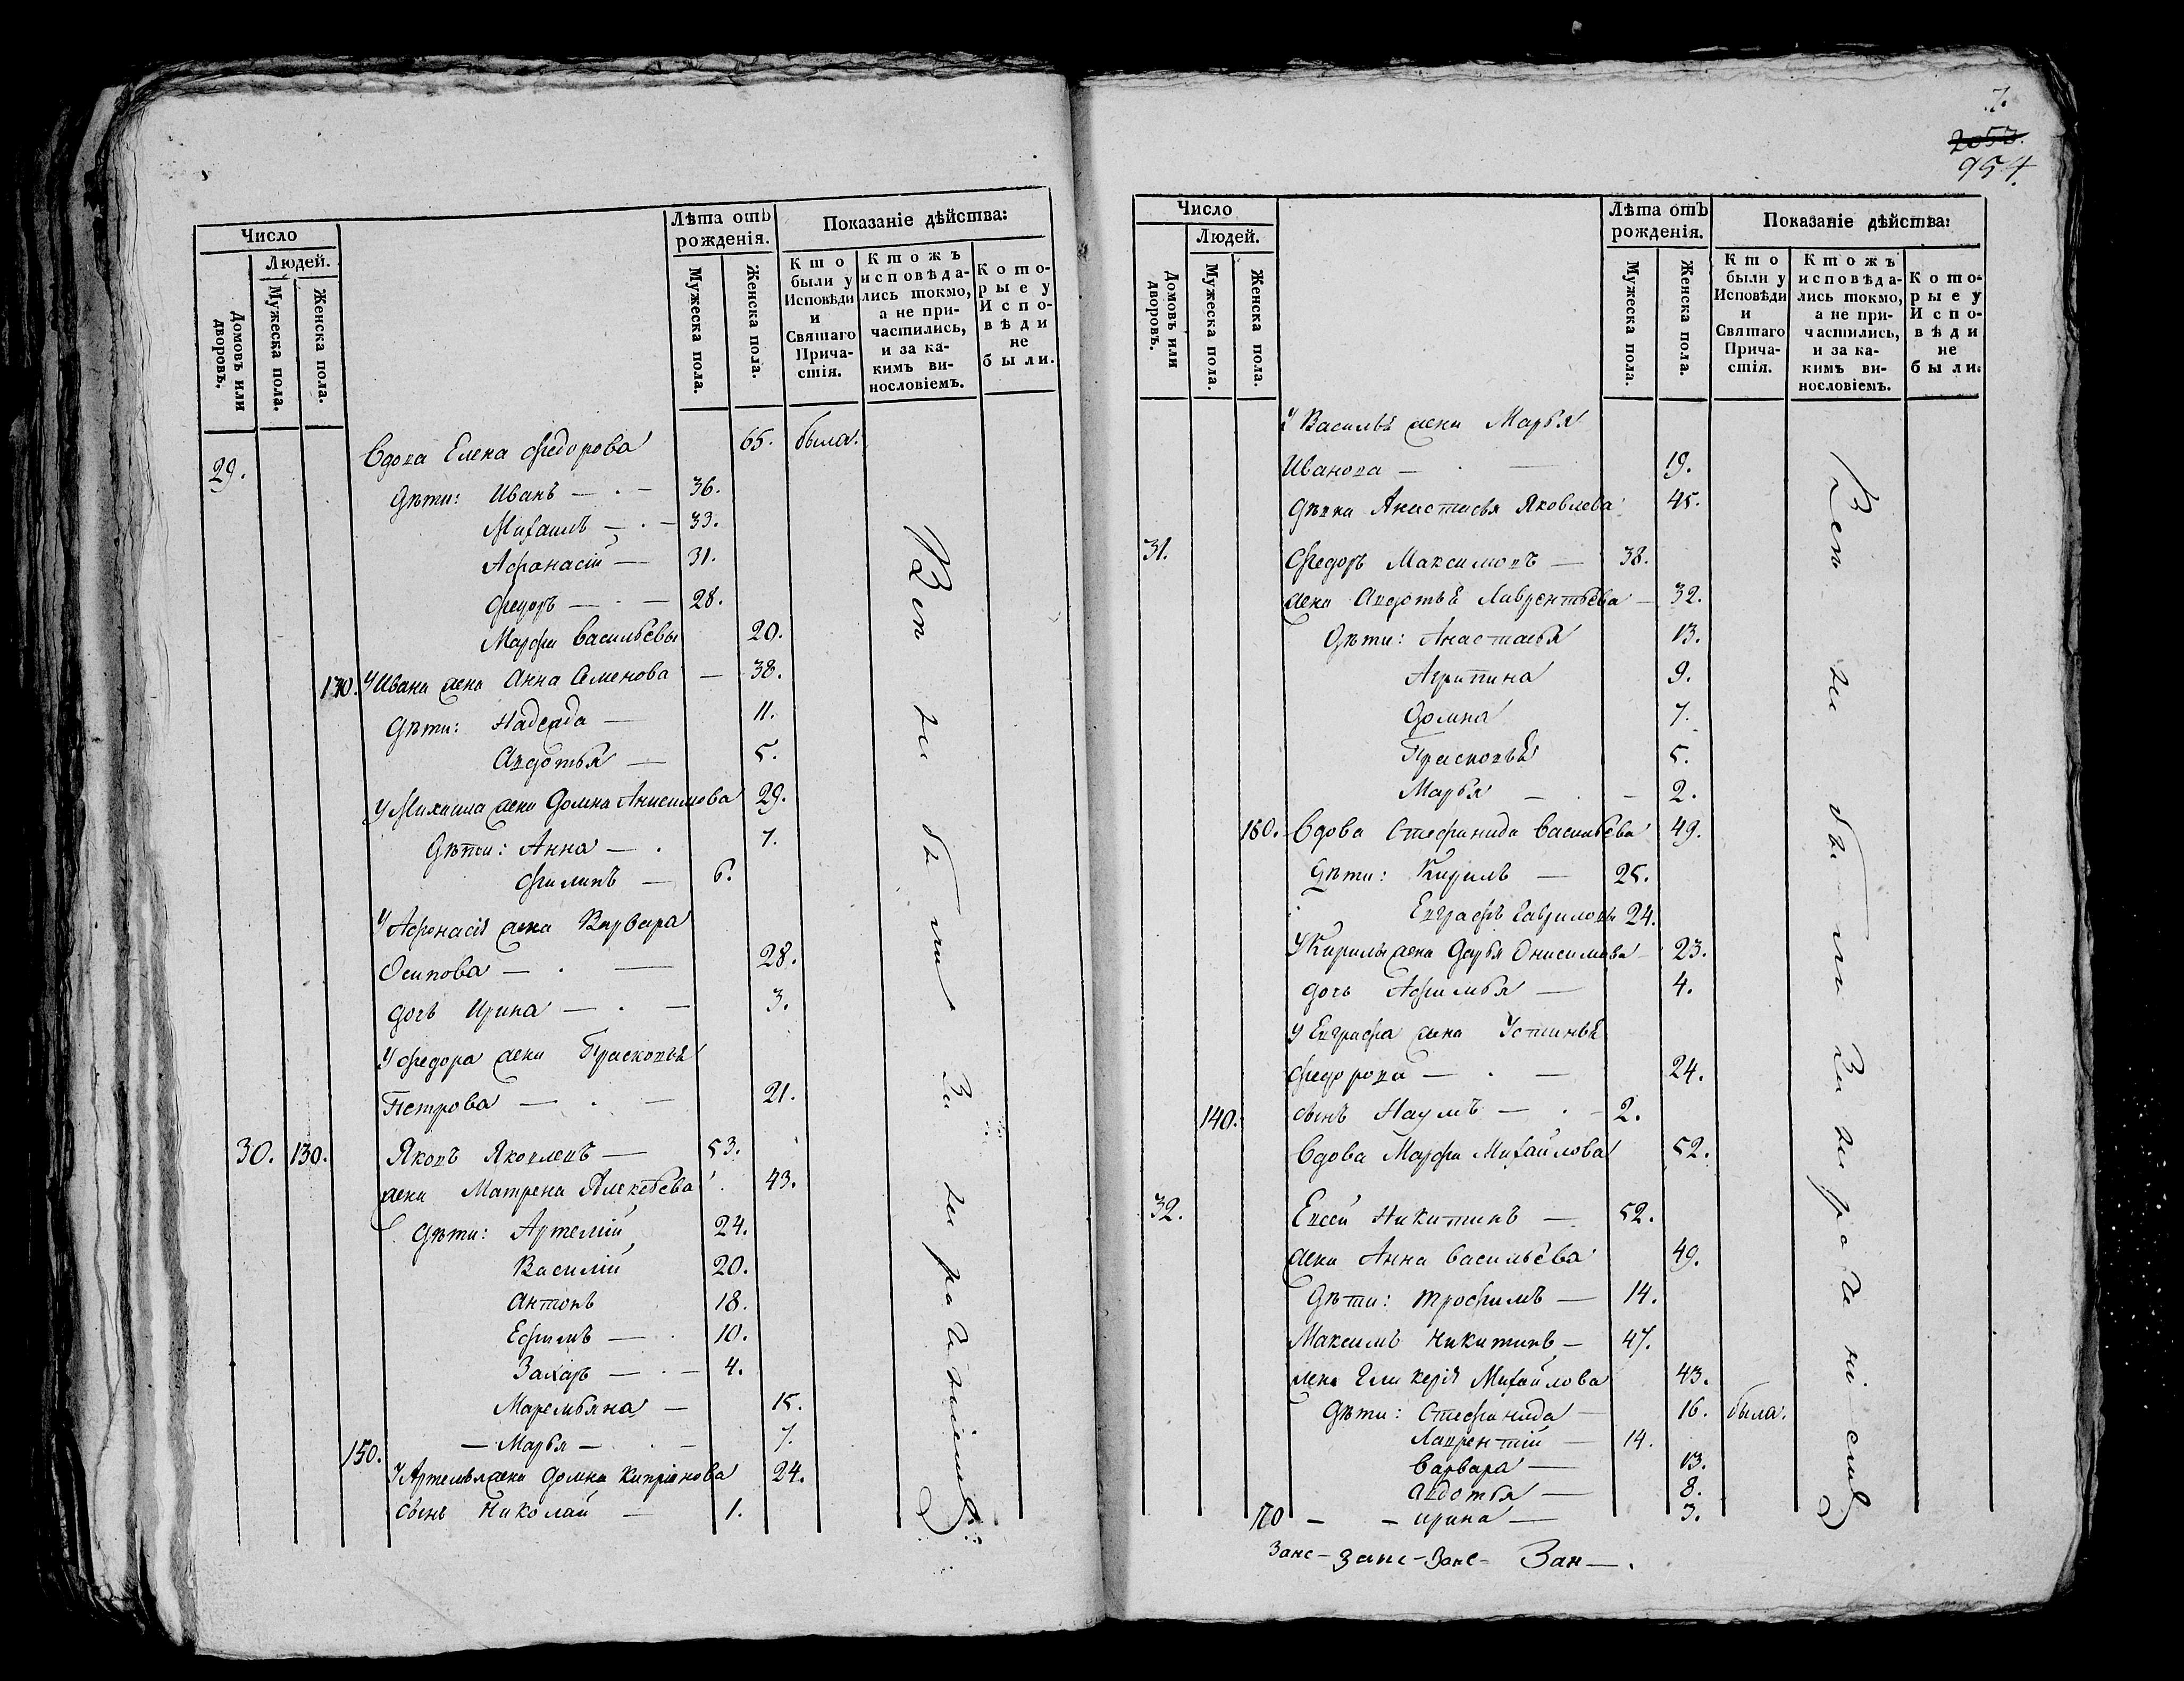 Число
Людей.
Домовъ или дворовъ.
Мужеска пола.
Женска пола.
Лѣта отъ рожденія.
Мужеска пола.
Женска пола.
Показаніе дѣйства:
Кто были у Исповѣди и Святаго Причастія.
Ктожъ исповѣдались токмо, а не причастились, и за какимъ винословіемъ.
Которые у Исповѣди не были.
29. Вдова Елена Федорова 65. была.
Дѣти: Иванъ — 36.
Михаилъ — 33.
Афанасій — 31.
Федоръ — 28.
Марфа Васильевы 20.
У Ивана жена Анна Семенова — 38.
Дѣти: Надежда — 11.
Авдотья — 5.
У Михаила жена Домна Анисимова 29.
Дѣти: Анна — 7.
Филипъ — 6.
У Афонасія жена Варвара
Осипова — 28.
дочь Ирина — 3.
У Федора жена Прасковья
Петрова — 21.
30. 130. Яковъ Яковлевъ — 53.
жена Матрена Алексѣева 43.
Дѣти: Артемій 24.
Василій 20.
Антонъ 18.
Ефимъ — 10.
Захаръ — 4.
Маремьяна — 15.
— Марья — 7.
150. У Артемья жена Домна Кипріянова 24.
сынъ Николай — 1.
Вси не были за нерачениемъ
7.
2053.
954.
Число
Людей.
Домовъ или дворовъ.
Мужеска пола.
Женска пола.
Лѣта отъ рожденія.
Мужеска пола.
Женска пола.
Показаніе дѣйства:
Кто были у Исповѣди и Святаго Причастія.
Ктожъ исповѣдались токмо, а не причастились, и за какимъ винословіемъ.
Которые у Исповѣди не были.
У Василья жена Марья
Иванова — 19.
Дѣвка Анастасья Яковлева 45.
31. Федоръ Максимовъ — 38.
жена Авдотья Лаврентьева — 32.
Дѣти: Анастасья 13.
Агрипина 9.
Домна 7.
Прасковья 5.
Марья — 2.
160. Вдова Стефанида Васильева 49.
Дѣти: Кирилъ — 25.
Евграфъ Гавриловы 24.
У Кирилы жена Дарья Онисимова 23.
дочь Афимья — 4.
У Евграфа жена Устинья
Федорова — 24.
140. сынъ Наумъ — 2.
Вдова Марфа Михайлова 52.
32. Евсей Никитинъ — 52.
жена Анна Васильева 49.
Дѣти: Трофимъ — 14.
Максимъ Никитинъ — 47.
жена Гликерія Михайлова 43.
Дѣти: Стефанида — 16. была.
Лаврентій — 14.
Варвара — 13.
Авдотья — 8.
170 — — Ирина — 3.